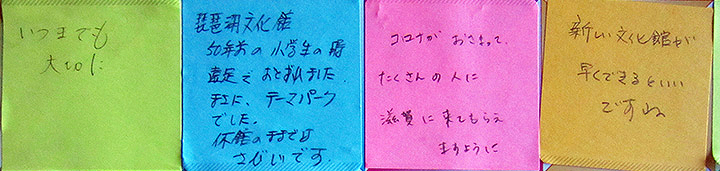 いつまでも
大切に
琵琶湖文化館
50年前の小学生の時
遠足でおとずれました。
まさに、テーマパーク
でした。
休館のままでは
さびしいです。
コロナが おさまって、
たくさんの人に
滋賀に来てもらえ
ますように
新しい文化館が
早くできるといい
ですね